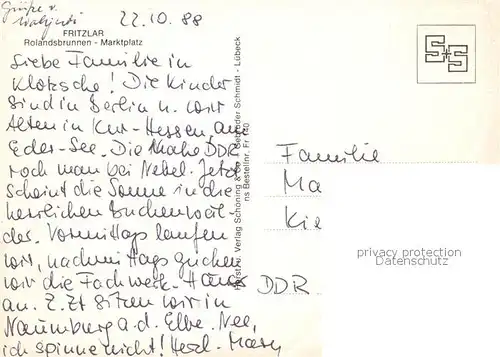 Grüße v.
22.10.88
FRITZLAR
Rolandsbrunnen - Marktplatz
Liebe Familie in
Klotzsche! Die Kinder
sind in Berlin u. wir
Alten in Kur-Hessen, am
Eder-See. Die Nähe DDR
roch man bei Nebel. Jetzt
scheint die Sonne in die
herrlichen Buchenwäl-
der. Vormittags laufen
wir, nachmittags gucken
wir die Fachwerk-Häuser
an. Z. Zt sitzen wir in
Naumburg a.d. Elbe. Nee,
ich spinne nicht! Herzl.
Verlag Schöning & Gebrüder Schmidt - Lübeck
Bestellnr. Fr
S+S
Familie
Ma
Kie
DDR
privacy protection
Datenschutz